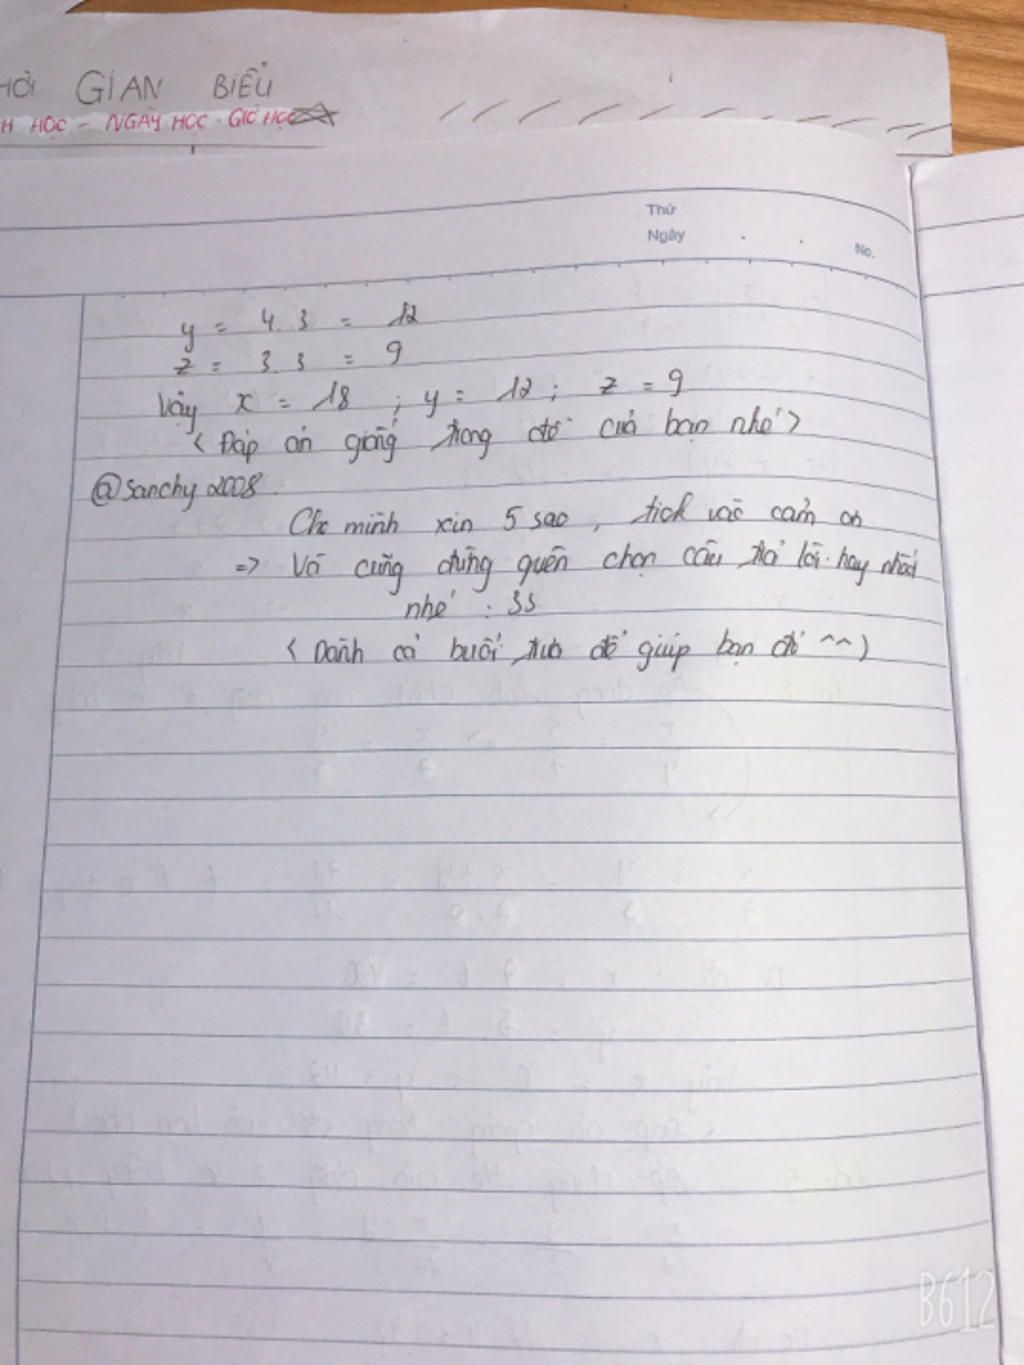 HỜI GIAN BIỂU
H HỌC - NGÀY HỌC - GIỜ HỌC
Thứ
Ngày
No.
y = 4.3 = 12
z = 3.3 = 9
Vậy x = 18 ; y = 12 ; z = 9
< Đáp án giống trong đề của bạn nhé >
@Sanchy2008
Cho mình xin 5 sao , tick và cảm ơn
=> Và cũng đừng quên chọn câu trả lời hay nhất
nhé : 33
( Dành cả buổi trưa để giúp bạn đó ^^ )
B612